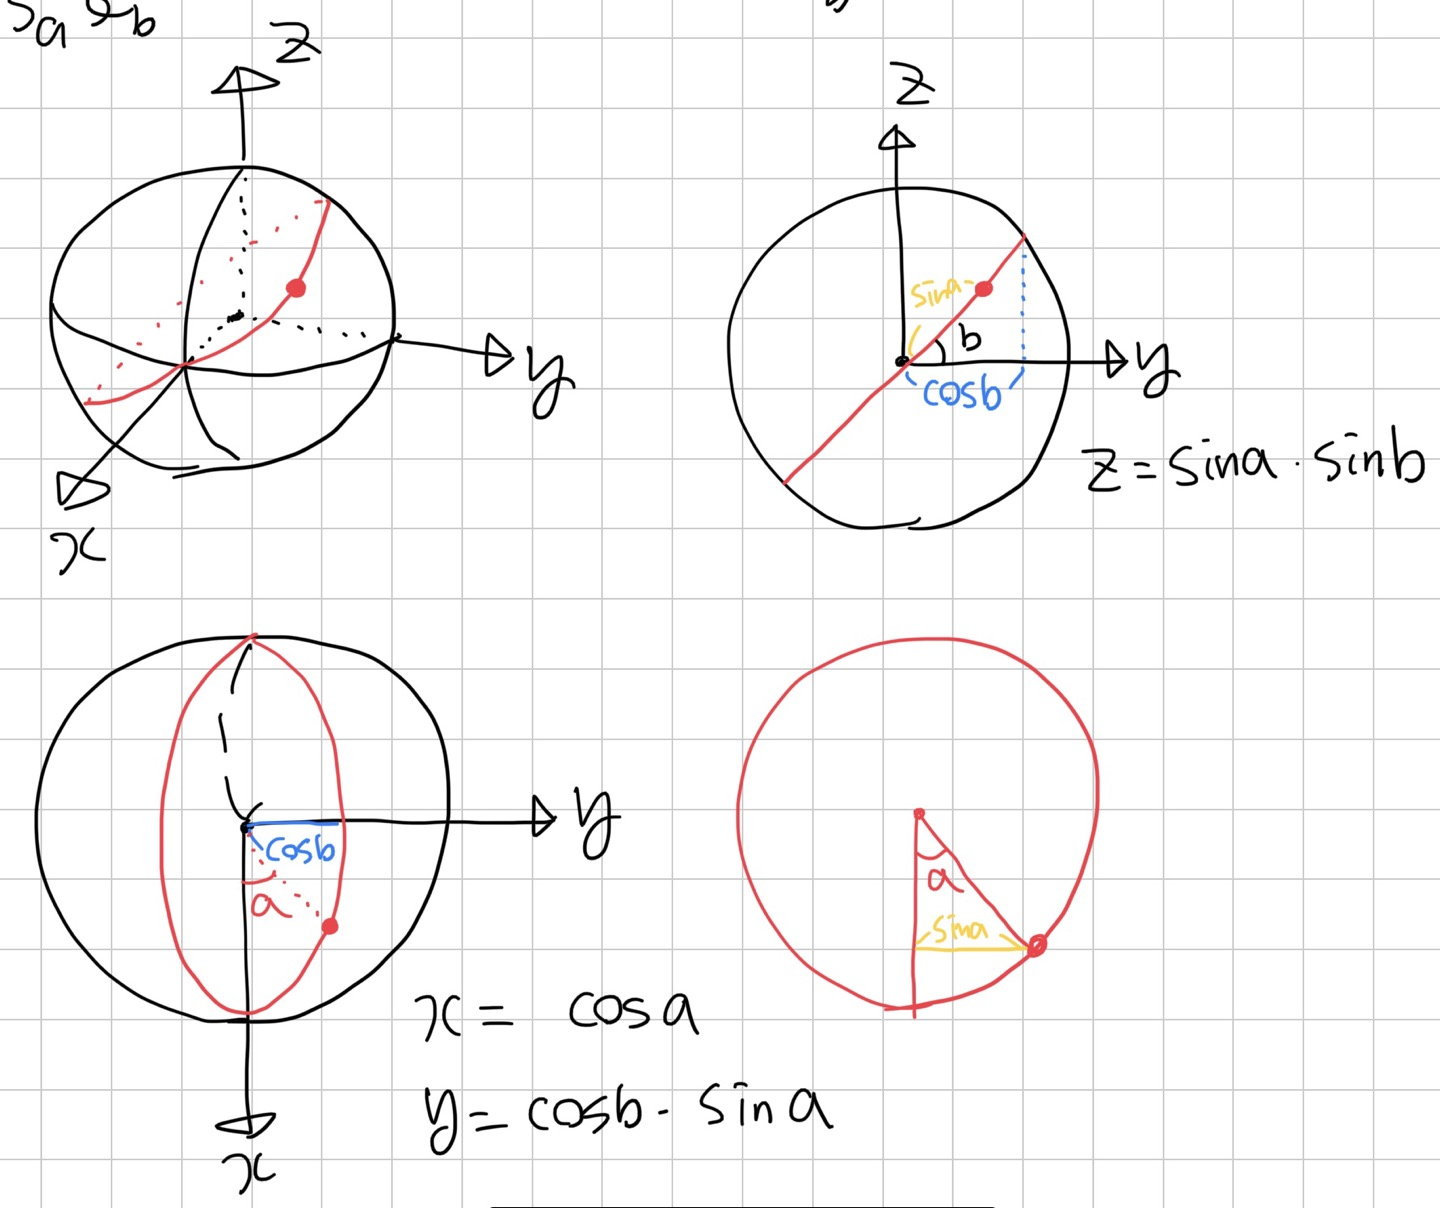 z
z
y
x
sina
b
cosb
y
z = sina · sinb
y
cosb
a
x
a
sina
x = cosa
y = cosb · sina